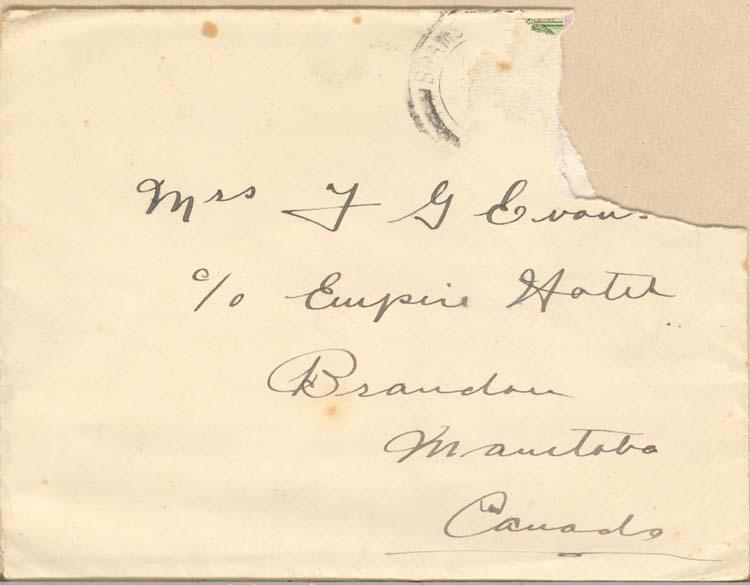 Mrs F G Evans
c/o Empire Hotel
Brandon
Manitoba
Canada